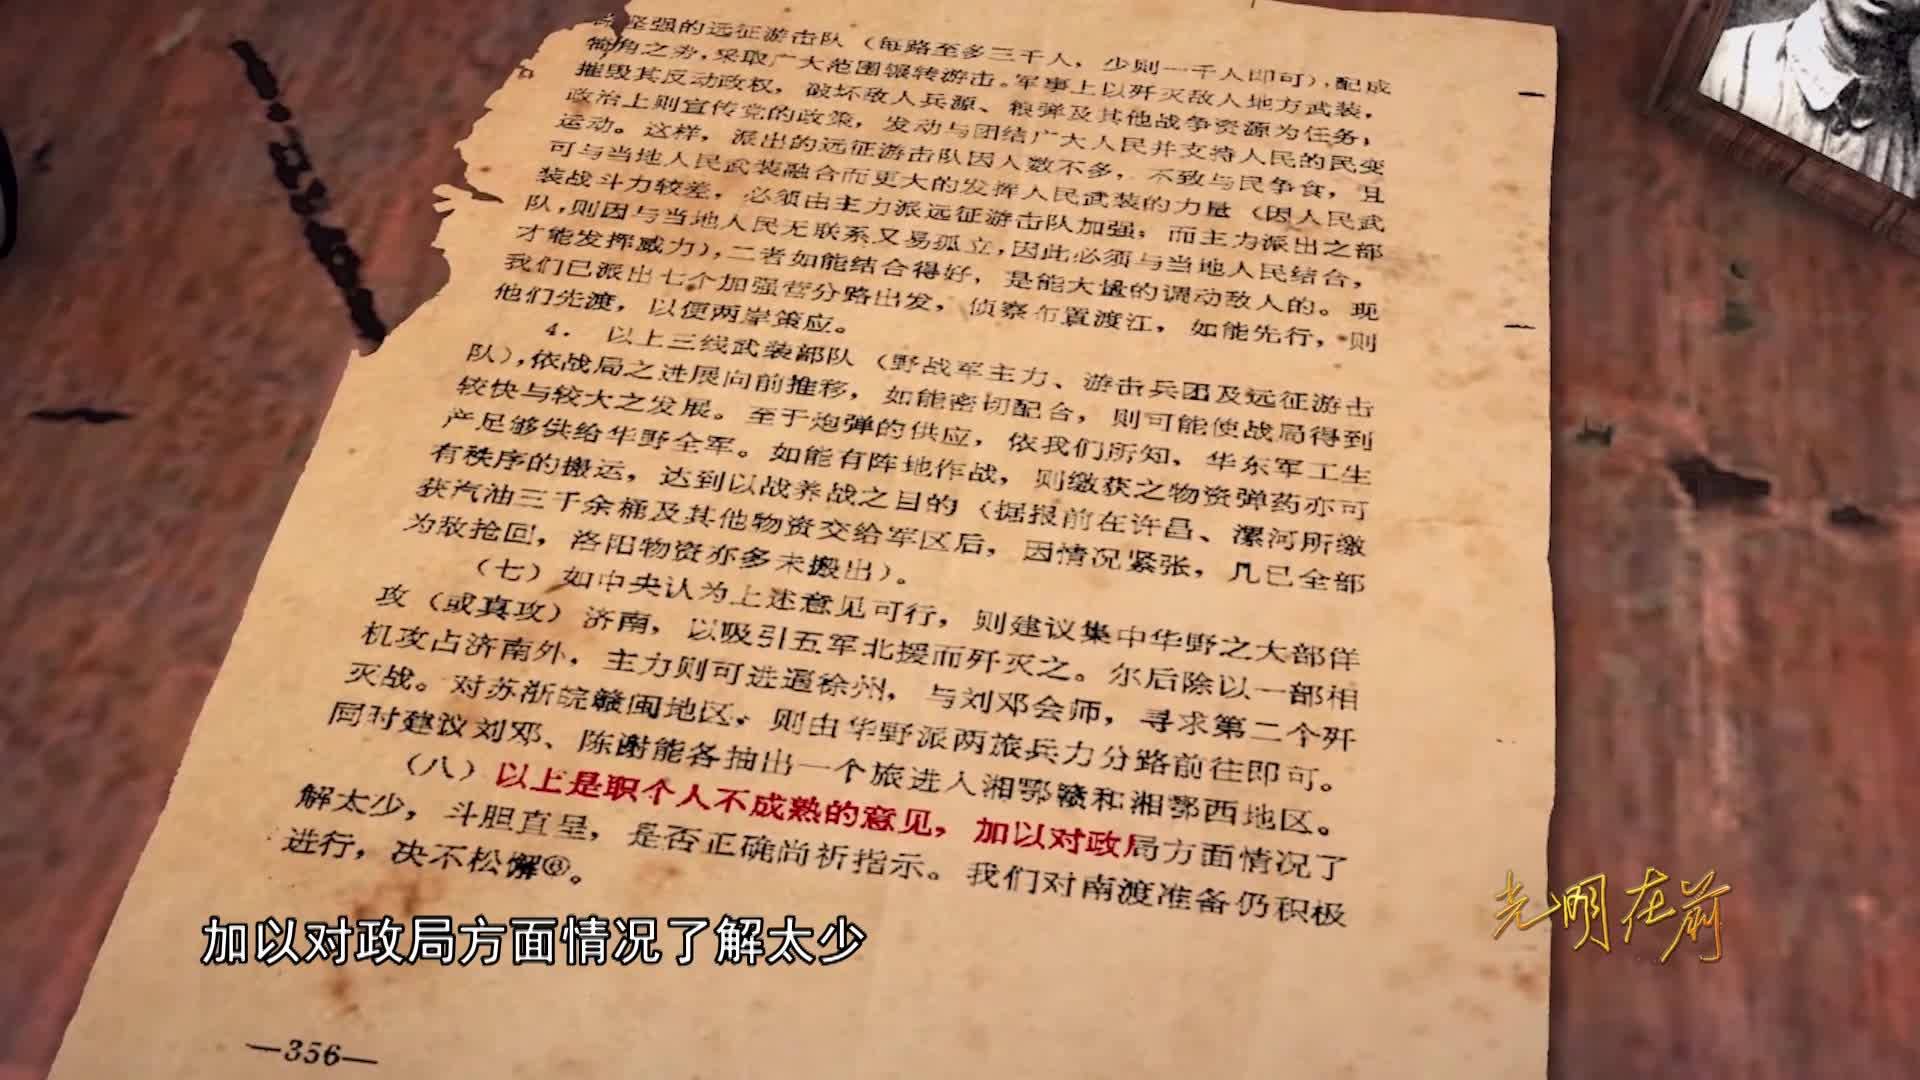 坚强的远征游击队（每路至多三千人，少则一千人即可），配成
犄角之势，采取广大范围辗转游击。军事上以歼灭敌人地方武装，
摧毁其反动政权，破坏敌人兵源、粮弹及其他战争资源为任务，
政治上则宣传党的政策，发动与团结广大人民并支持人民的民变
运动。这样，派出的远征游击队因人数不多，不致与民争食，且
可与当地人民武装融合而更大的发挥人民武装的力量（因人民武
装战斗力较差，必须由主力派远征游击队加强；而主力派出之部
队，则因与当地人民无联系又易孤立，因此必须与当地人民结合，
才能发挥威力），二者如能结合得好，是能大量的调动敌人的。现
我们已派出七个加强营分路出发，侦察布置渡江，如能先行，则
他们先渡，以便两岸策应。
4． 以上三线武装部队（野战军主力、游击兵团及远征游击
队），依战局之进展向前推移，如能密切配合，则可能使战局得到
较快与较大之发展。至于炮弹的供应，依我们所知，华东军工生
产足够供给华野全军。如能有阵地作战，则缴获之物资弹药亦可
有秩序的搬运，达到以战养战之目的（据报前在许昌、漯河所缴
获汽油三千余桶及其他物资交给军区后，因情况紧张，几已全部
为敌抢回，洛阳物资亦多未搬出）。
（七）如中央认为上述意见可行，则建议集中华野之大部佯
攻（或真攻）济南，以吸引五军北援而歼灭之。尔后除以一部相
机攻占济南外，主力则可进逼徐州，与刘邓会师，寻求第二个歼
灭战。对苏浙皖赣闽地区，则由华野派两旅兵力分路前往即可。
同时建议刘邓、陈谢能各抽出一个旅进入湘鄂赣和湘鄂西地区。
（八）以上是职个人不成熟的意见，加以对政局方面情况了
解太少，斗胆直呈，是否正确尚祈指示。我们对南渡准备仍积极
进行，决不松懈⑧。
加以对政局方面情况了解太少
光明在前
—356—